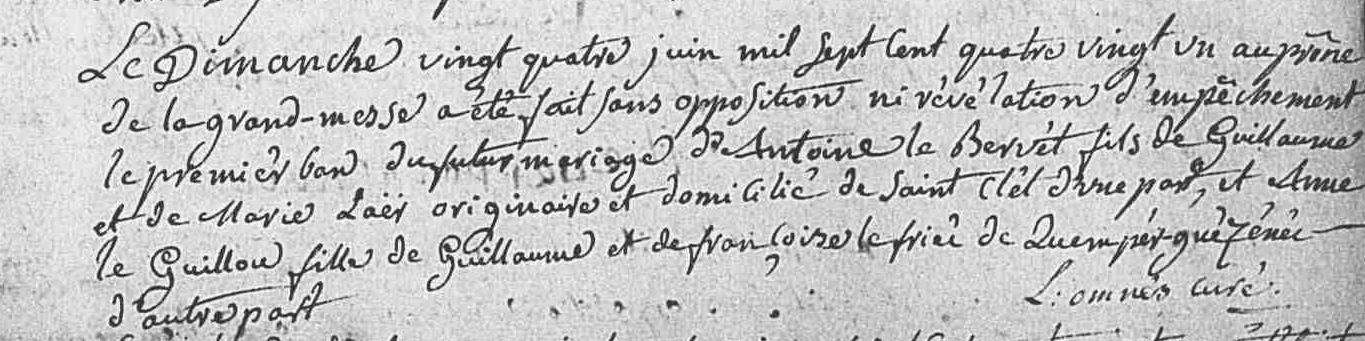 Le Dimanche vingt quatre juin mil sept Cent quatre vingt un au prône
de la grand-messe a été fait sans opposition ni révélation d'empêchement
le premièr ban du futur mariage d'Antoine le Bervét fils de Guillaume
et de Marie Laër originaire et domicilié de Saint Clét d'une part, et Anne
le Guillou fille de Guillaume et de françoise le friéc de Quempér-guézénéc
d'autre part
L: omnés curé.